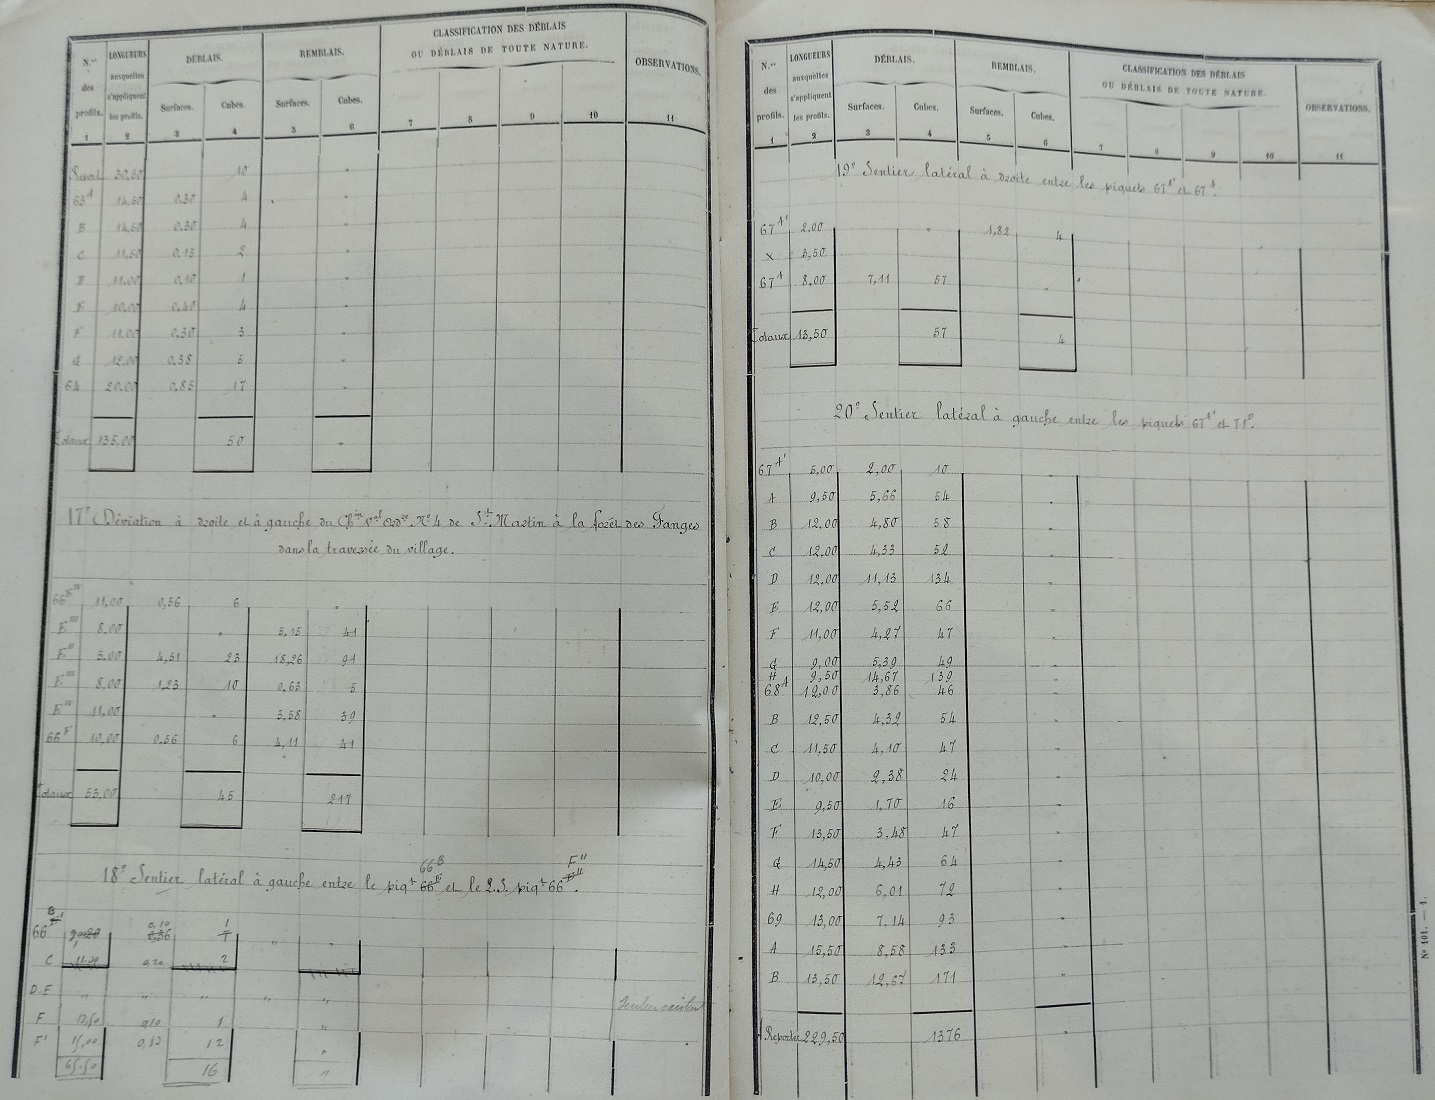 N.os des profils. LONGUEURS auxquelles s'appliquent les profils. DÉBLAIS. REMBLAIS. CLASSIFICATION DES DÉBLAIS OU DÉBLAIS DE TOUTE NATURE. OBSERVATIONS.
Surfaces. Cubes. Surfaces. Cubes.
1 2 3 4 5 6 7 8 9 10 11
Report 30,50 10 "
63A 14,50 0,30 4 "
B 14,50 0,30 4 "
C 11,50 0,15 2 "
D 11,00 0,10 1 "
E 10,00 0,40 4 "
F 11,00 0,30 3 "
G 12,00 0,38 5 "
64 20,00 0,85 17 "
Totaux 135,00 50 "
17° Déviation à droite et à gauche du Chin Val Ordre No 4 de St Martin à la forêt des Fanges
dans la traversée du village.
66EIV 11,00 0,56 6 "
E''' 8,00 " 5,15 41
E'' 5,00 4,51 23 18,26 91
E''' 8,00 1,23 10 0,63 5
EIV 11,00 " 3,58 39
66F 10,00 0,56 6 4,11 41
Totaux 53,00 45 217
66B F''
18° Sentier latéral à gauche entre le piqt 66E et le 2.S. piqt 66E''.
66B 0,10 1
C 2
D.E " " " " "
F 13,50 0,10 1 "
F' 15,00 0,83 12 "
65.50 16 "
N.os des profils. LONGUEURS auxquelles s'appliquent les profils. DÉBLAIS. REMBLAIS. CLASSIFICATION DES DÉBLAIS OU DÉBLAIS DE TOUTE NATURE. OBSERVATIONS.
Surfaces. Cubes. Surfaces. Cubes.
1 2 3 4 5 6 7 8 9 10 11
19° Sentier latéral à droite entre les piquets 67A' et 67A.
67A' 2,00 " 1,82 4
X 3,50
67A 8,00 7,11 57 "
Totaux 13,50 57 4
20° Sentier latéral à gauche entre les piquets 67A' et 71D.
67A' 5,00 2,00 10 "
A 9,50 5,66 54 "
B 12,00 4,80 58 "
C 12,00 4,33 52 "
D 12,00 11,13 134 "
E 12,00 5,52 66 "
F 11,00 4,27 47 "
G 9,00 5,39 49 "
H 9,50 14,67 139
68A 12,00 3,86 46 "
B 12,50 4,32 54 "
C 11,50 4,10 47 "
D 10,00 2,38 24 "
E 9,50 1,70 16 "
F 13,50 3,48 47 "
G 14,50 4,43 64 "
H 12,00 6,01 72 "
69 13,00 7,14 93 "
A 15,50 8,58 133 "
B 13,50 12,67 171 "
A Reporter 229,50 1376 "
No 101. — 1.